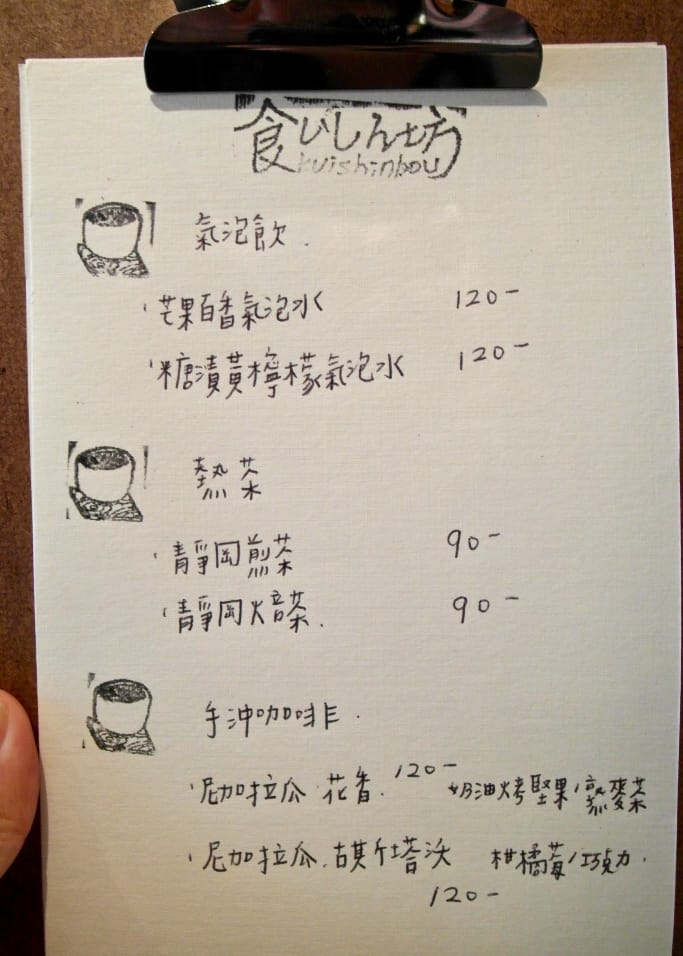 食いしん坊
kuishinbou
氣泡飲.
·芒果百香氣泡水 120-
·糖漬黃檸檬氣泡水 120-
熱茶
·靜岡煎茶 90-
·靜岡焙茶. 90-
手沖咖啡.
·尼加拉瓜 花香. 120- 奶油烤堅果/蕎麥茶
·尼加拉瓜.哥斯塔沃 柑橘莓/巧克力.
120-